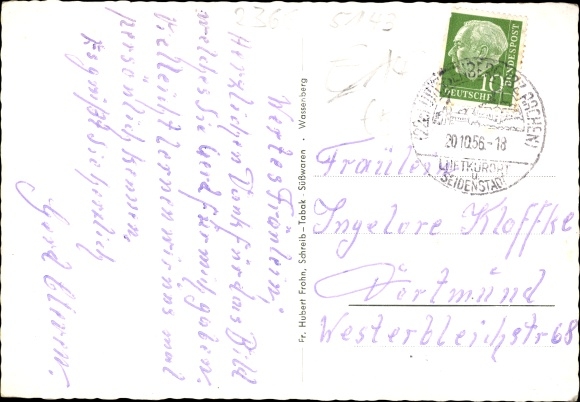 Wertes Fräulein,
Herzlichen Dank für das Bild
welches Sie Gerd für mich gaben.
Vielleicht lernen wir uns mal
persönlich kennen.
Es grüßt Sie herzlich
Gerd
Fr. Hubert Frohn, Schreib - Tabak - Süßwaren - Wassenberg
DEUTSCHE BUNDESPOST
10
20.10.56.-18
LUFTKURORT
U.
SEIDENSTADT
Fräulein
Ingelore Kloffke
Dortmünd
Westerbleichstr 68